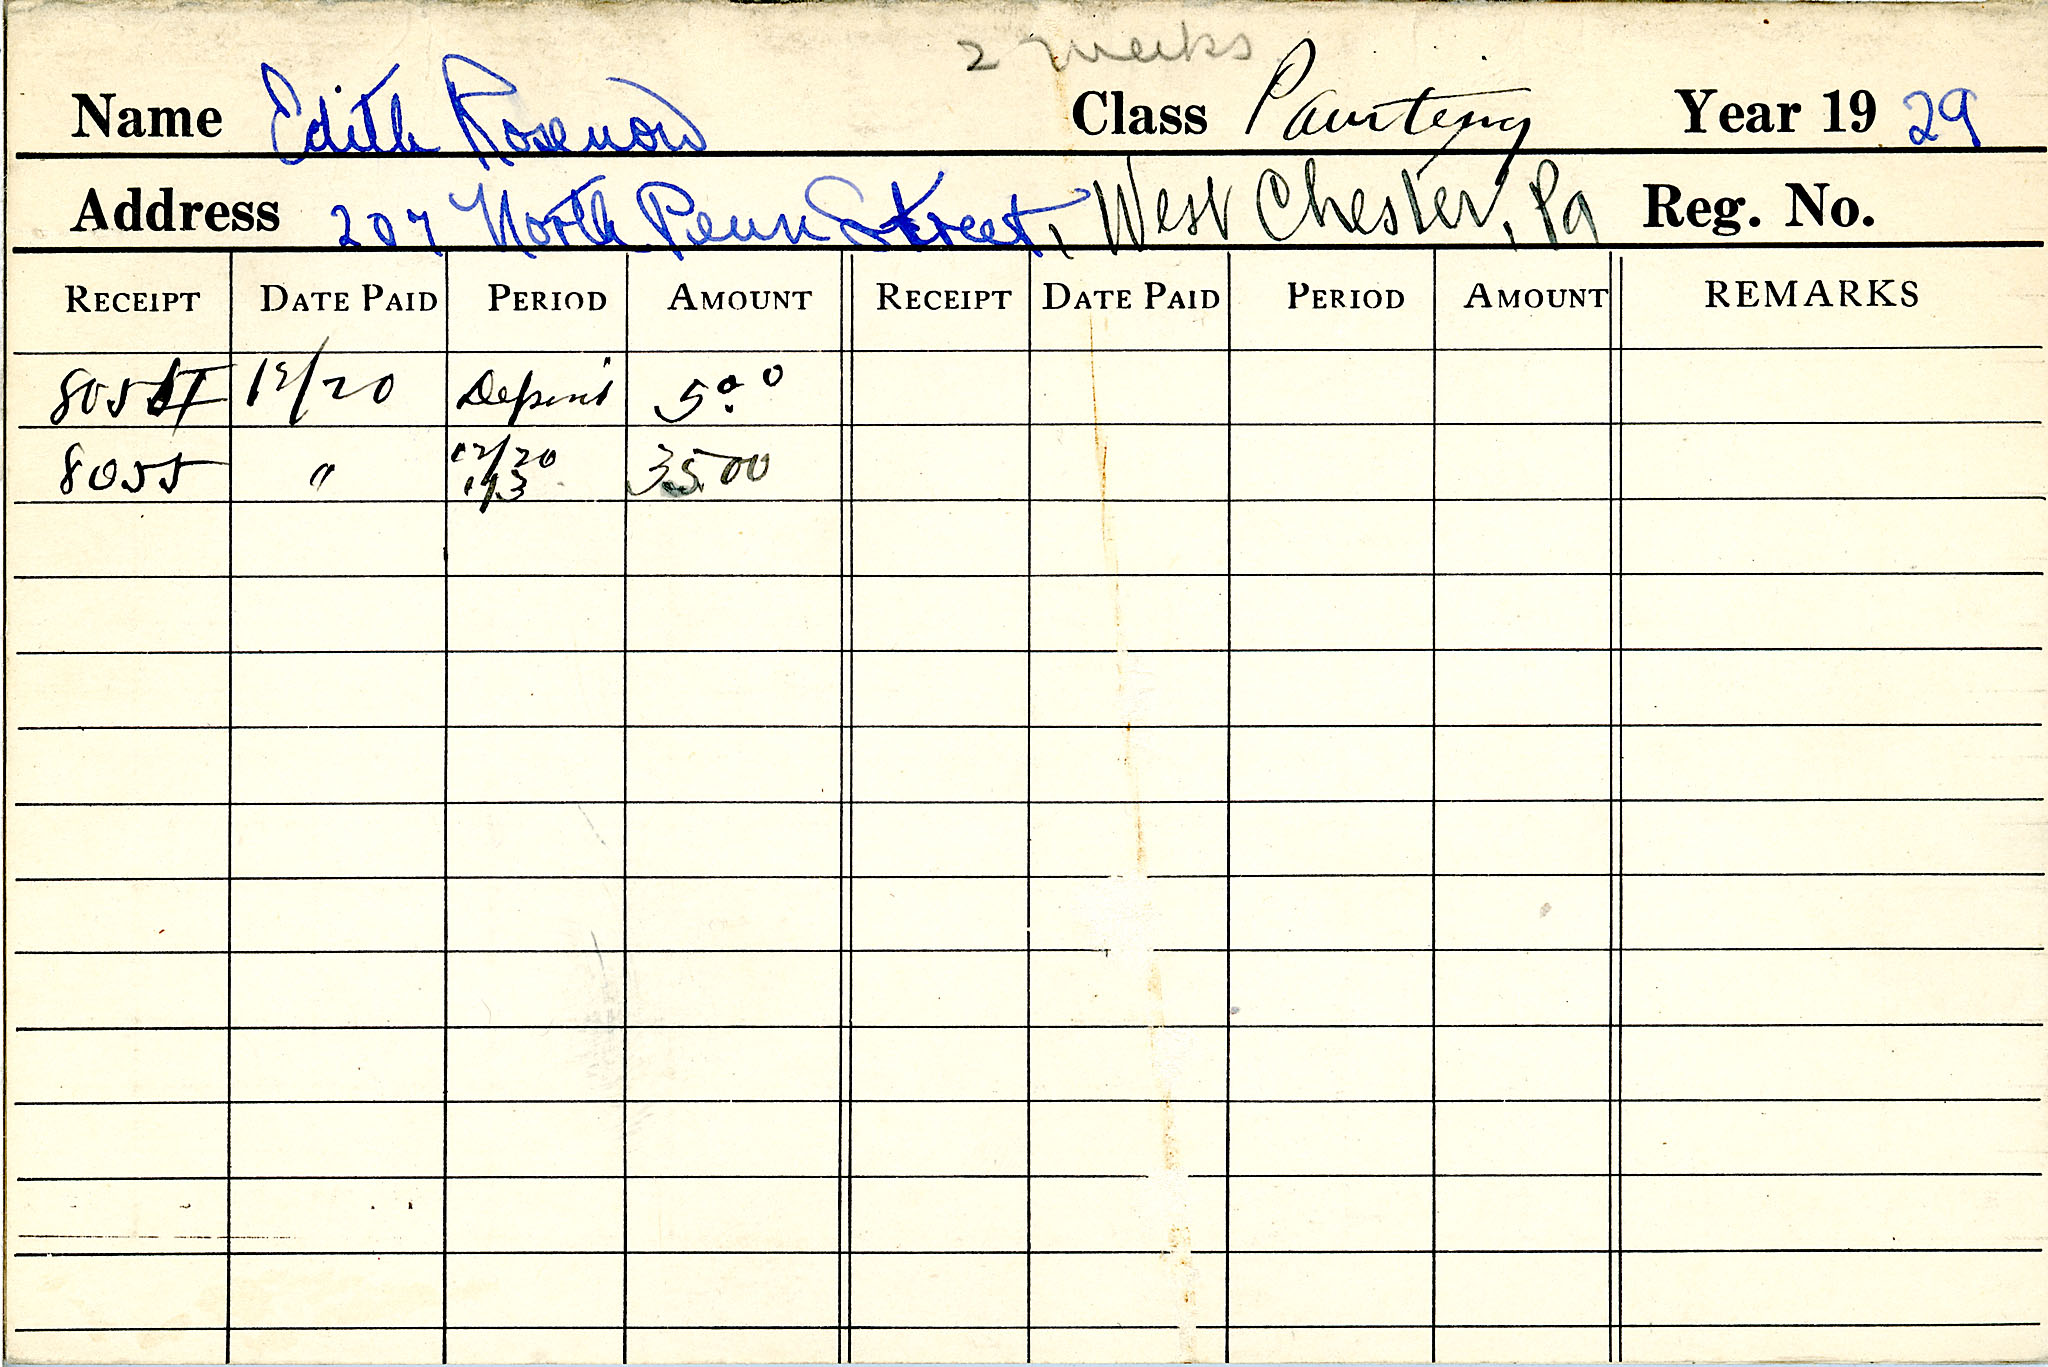 2 weeks
Name Edith Rosenow Class Painting Year 19 29
Address 207 North Penn Street, West Chester, Pa Reg. No.
RECEIPT DATE PAID PERIOD AMOUNT RECEIPT DATE PAID PERIOD AMOUNT REMARKS
12/20 Deposit 5.00
8055 " 12/20 35 00
1/3